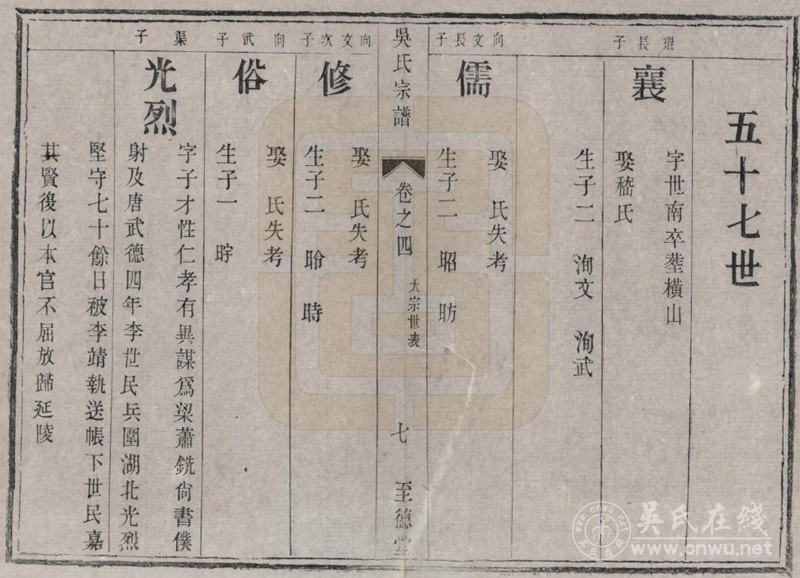 五十七世
琨長子
襄
字世南卒塟橫山
娶嵇氏
生子二 洵文 洵武
向文長子
儒
娶 氏失考
生子二 昭 昉
吳氏宗譜
卷之四
大宗世表
七
至德堂
向文次子
修
娶 氏失考
生子二 聆 時
向武子
俗
娶 氏失考
生子一
渠子
光烈
字子才性仁孝有異謀爲梁蕭銑尙書僕
射及唐武德四年李世民兵圍湖北光烈
堅守七十餘日被李靖執送帳下世民嘉
其賢後以本官不屈放歸延陵
吴氏在线
www.cnwu.net